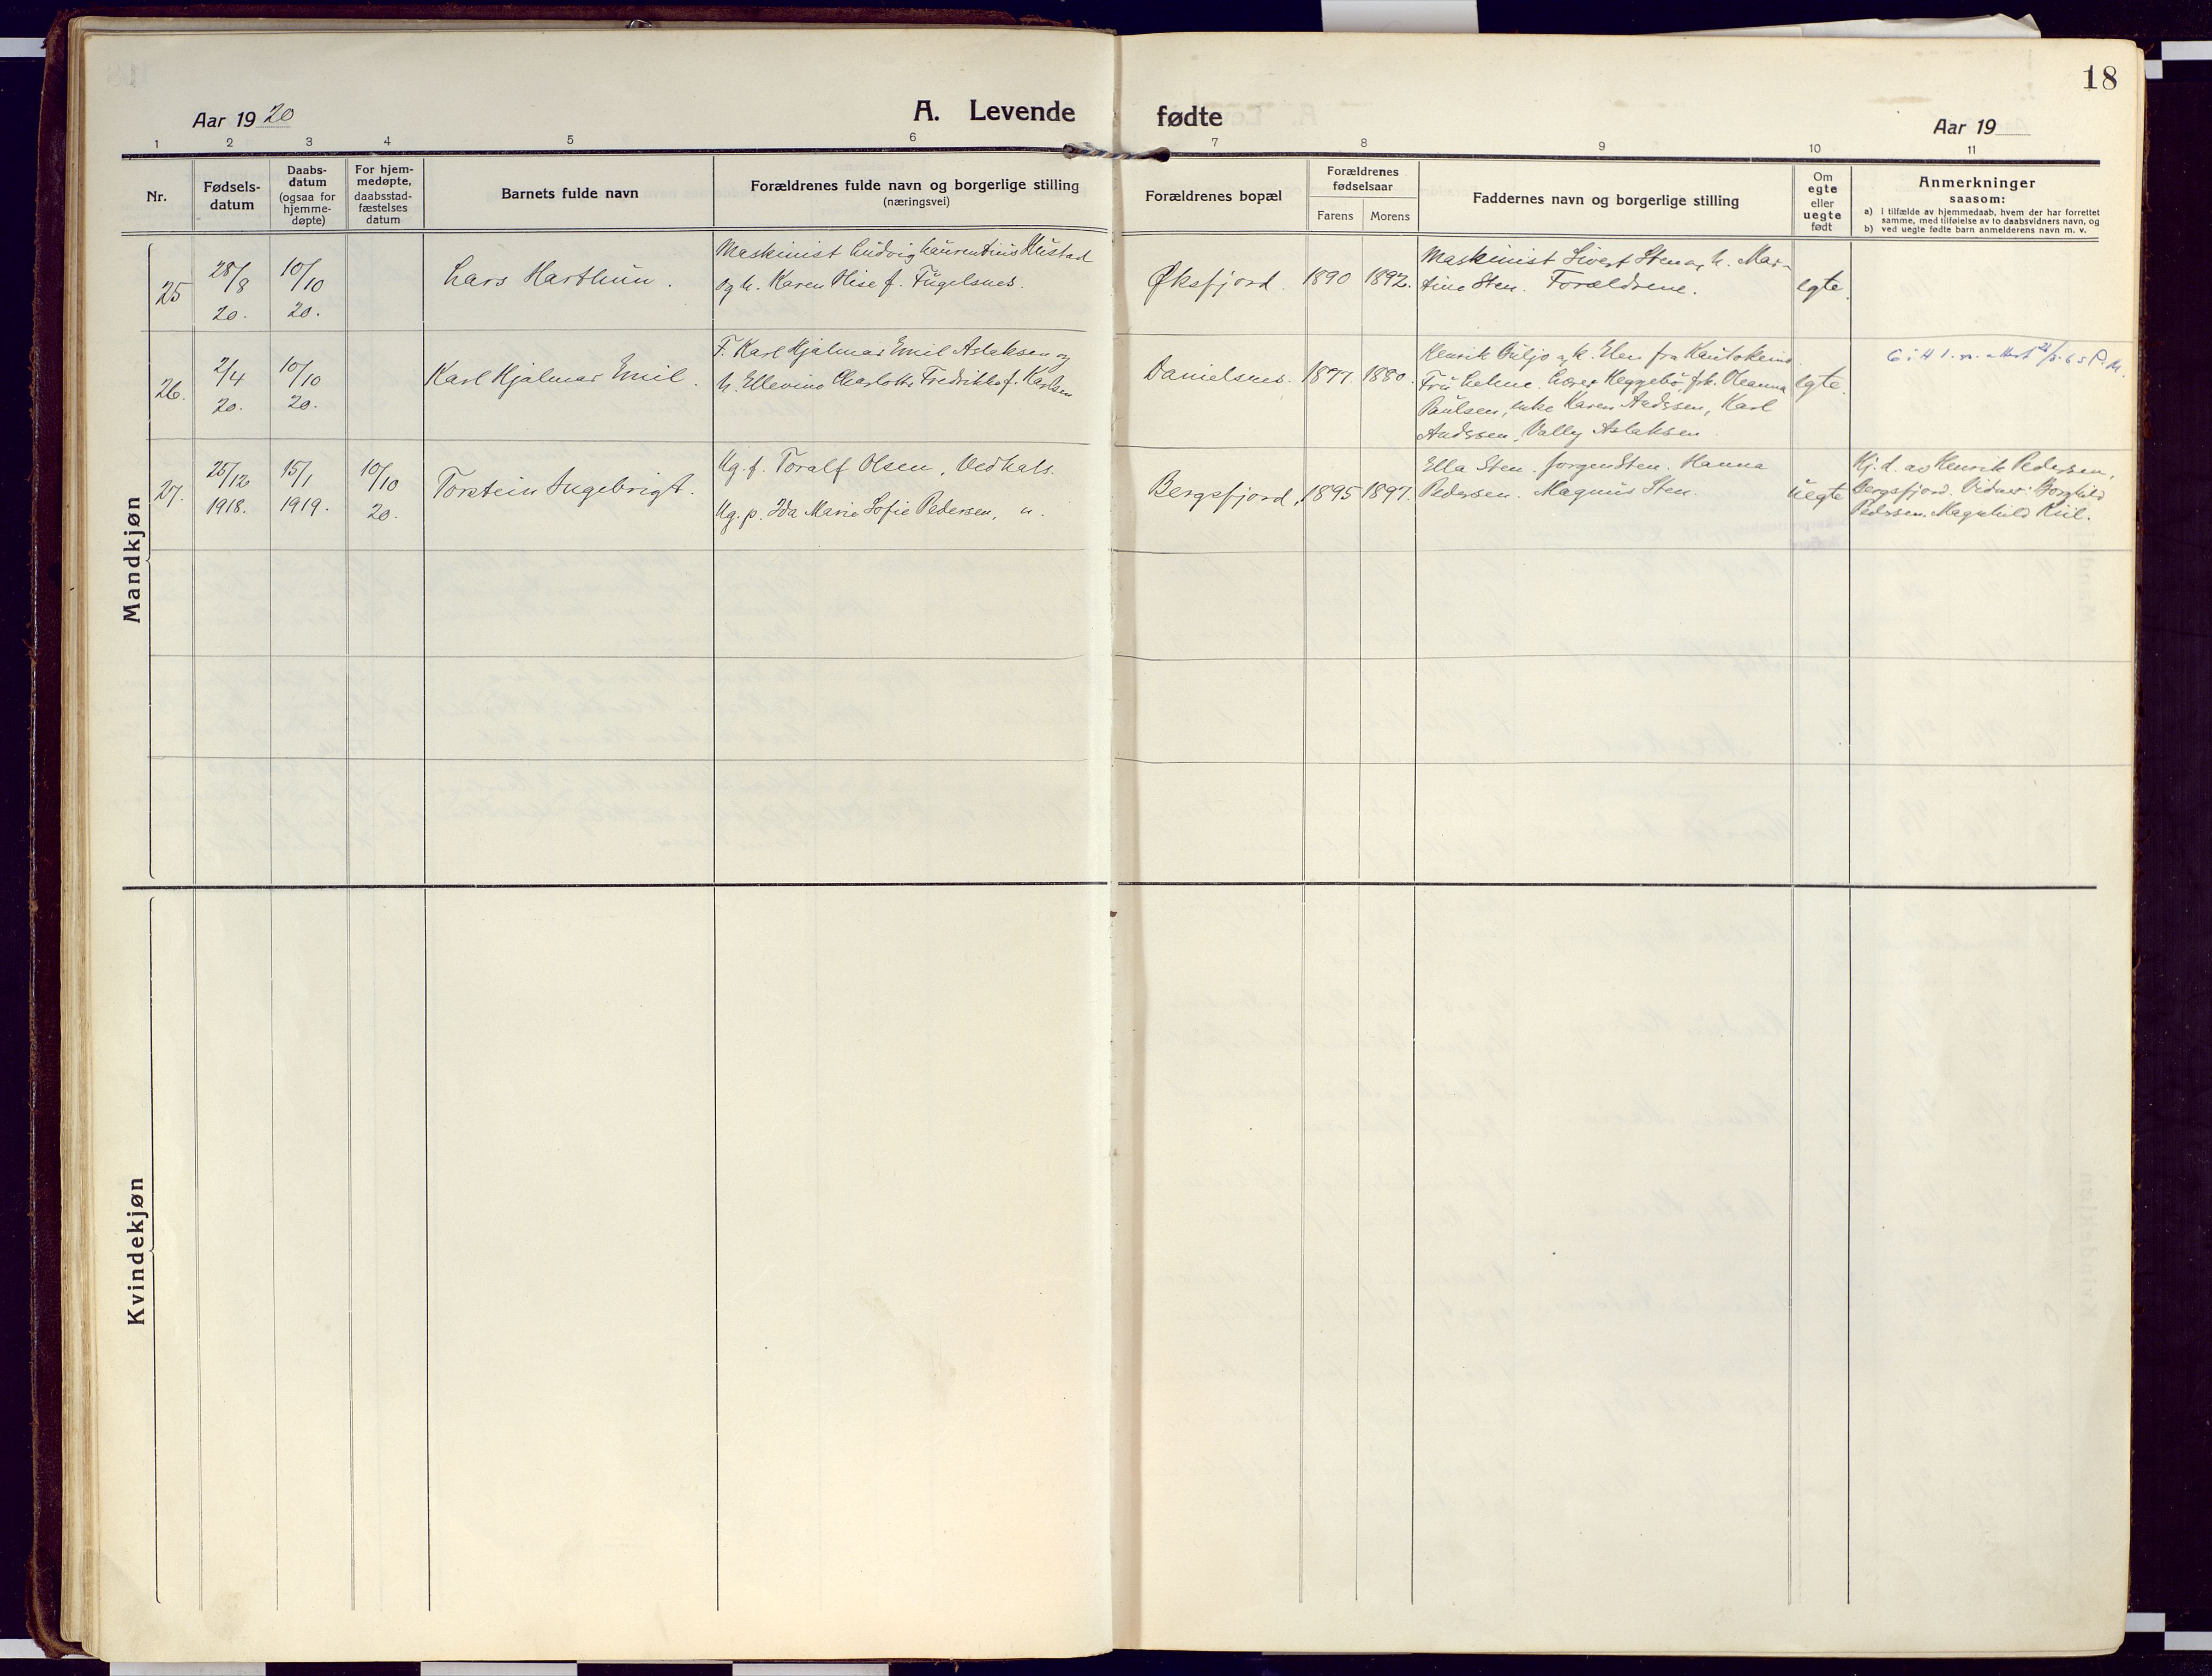 18
Aar 1920
A. Levende fødte
Aar 19
1 2 3 4 5 6 7 8 9 10 11
Nr.
Fødsels-
datum
Daabs-
datum
(ogsaa for
hjemme-
døpte)
For hjem-
medøpte,
daabsstad-
fæstelses
datum
Barnets fulde navn
Forældrenes fulde navn og borgerlige stilling
(næringsvei)
Forældrenes bopæl
Forældrenes
fødselsaar
Farens Morens
Faddernes navn og borgerlige stilling
Om
egte
eller
uegte
født
Anmerkninger
saasom:
a) i tilfælde av hjemmedaab, hvem der har forrettet
samme, med tilføielse av to daabsvidners navn, og
b) ved uegte fødte barn anmelderens navn m. v.
Mandkjøn
25
28/8
20.
10/10
20.
Lars Harthun.
Maskinist Ludvig Laurentius Hustad
og h. Karen Olise f. Fugelsnes.
Øksfjord.
1890 1892.
Maskinist Sivert Sten og h. Mar-
tine Sten. Forældrene.
egte.
26.
2/4
20.
10/10
20.
Karl Hjalmar Emil.
F. Karl Hjalmar Emil Aslaksen og
h. Ellevine Charlotte Fredrikke f. Karlsen
Danielsnes.
1877. 1880.
Henrik Buljo og h. Elen fra Kautokeino.
Fru Lehne. Lærer Heggebø, frk. Oleanna
Paulsen, enke Karen Andssen, Karl
Andssen, Vally Aslaksen
egte.
27.
25/12
1918.
15/1
1919.
10/10
20.
Torstein Ingebrigt.
Ug. f. Toralf Olsen, Vedhals.
Ug. p. Ida Marie Sofie Pedersen, u.
Bergsfjord.
1895 1897.
Ella Sten. Jørgen Sten. Hanna
Pedersen. Magnus Sten.
uegte
Hj. d. av Henrik Pedersen,
Bergsfjord. Vidner: Borghild
Pedersen. Magnhild Kiil.
Kvindekjøn